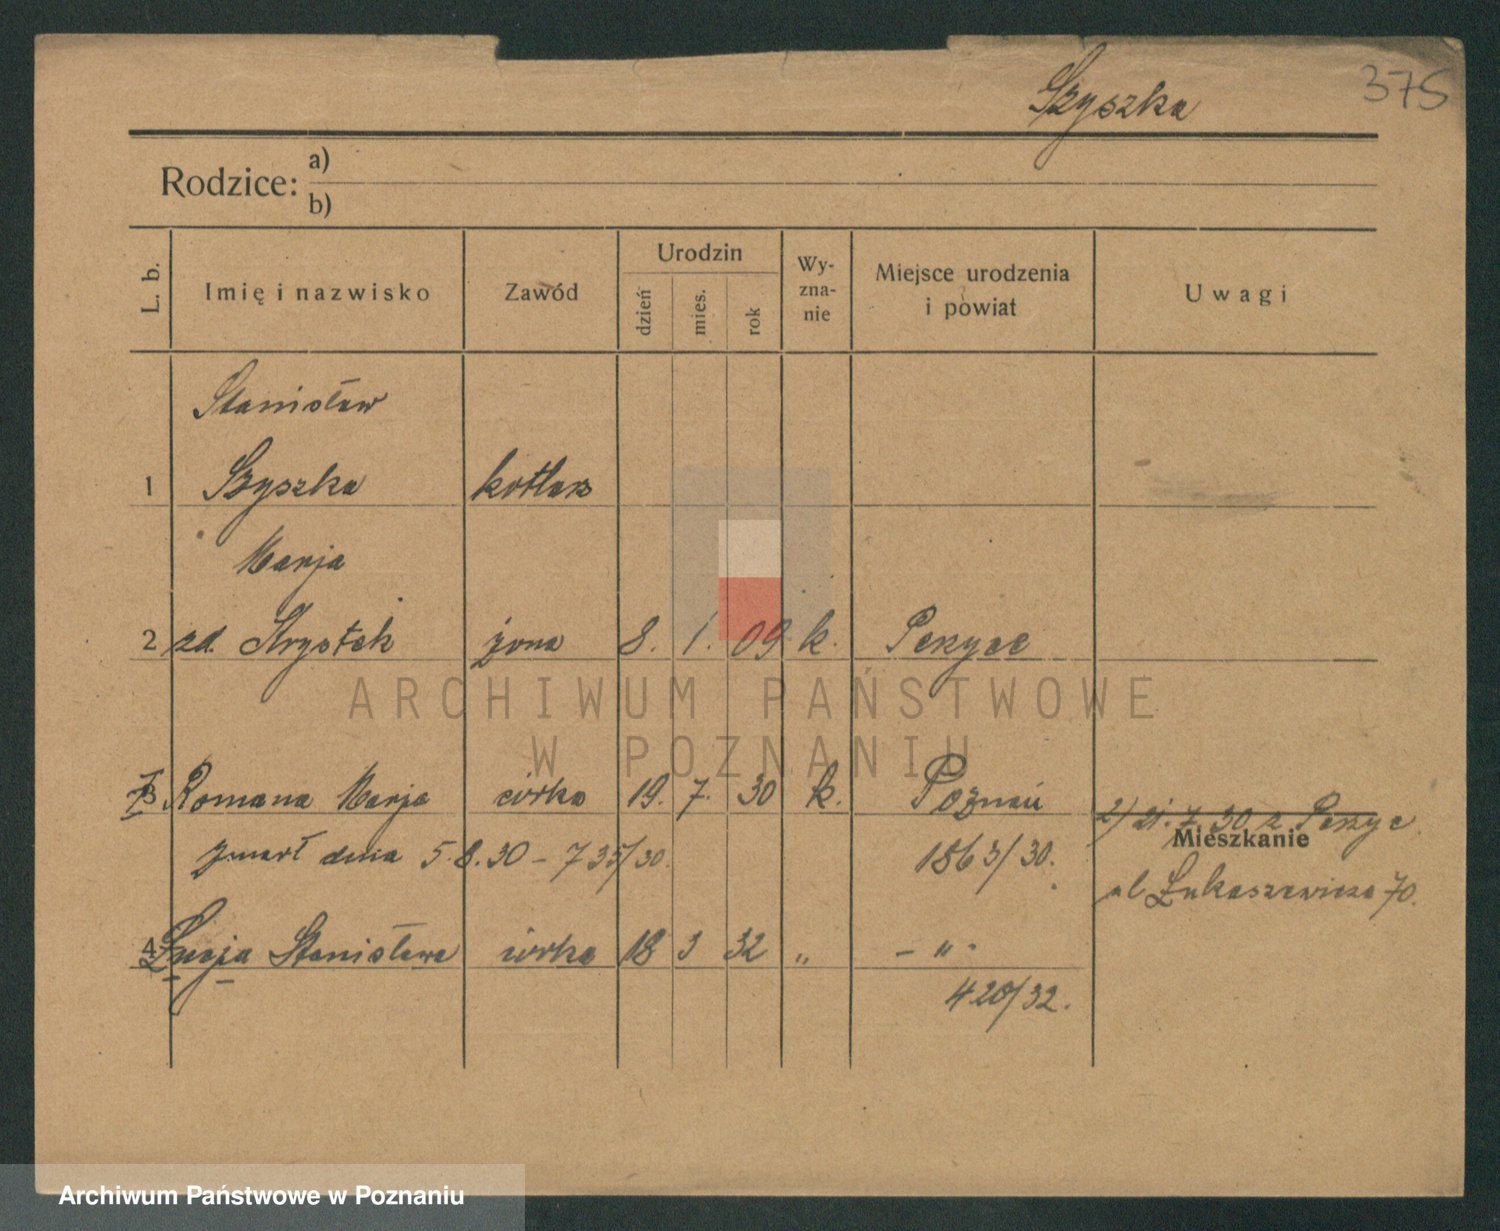 Szyszka
375
Rodzice:
a)
b)
L. b.
Imię i nazwisko
Zawód
Urodzin
dzień
mies.
rok
Wy-
zna-
nie
Miejsce urodzenia
i powiat
Uwagi
Stanisław
1 Szyszka kotlarz
Marja
2 zd. żona 8. 1. 09 k.
ARCHIWUM PAŃSTWOWE
W POZNANIU
3 Romana Marja córka 19. 7. 30 k. Poznań
zmarł dnia 5.8.30 – 735/30. 1863/30.
2) 7 30 z
Mieszkanie
ul Łukaszewicza 70.
4 Łucja Stanisława córka 18 3 32 „ – „ -
420/32.
Archiwum Państwowe w Poznaniu